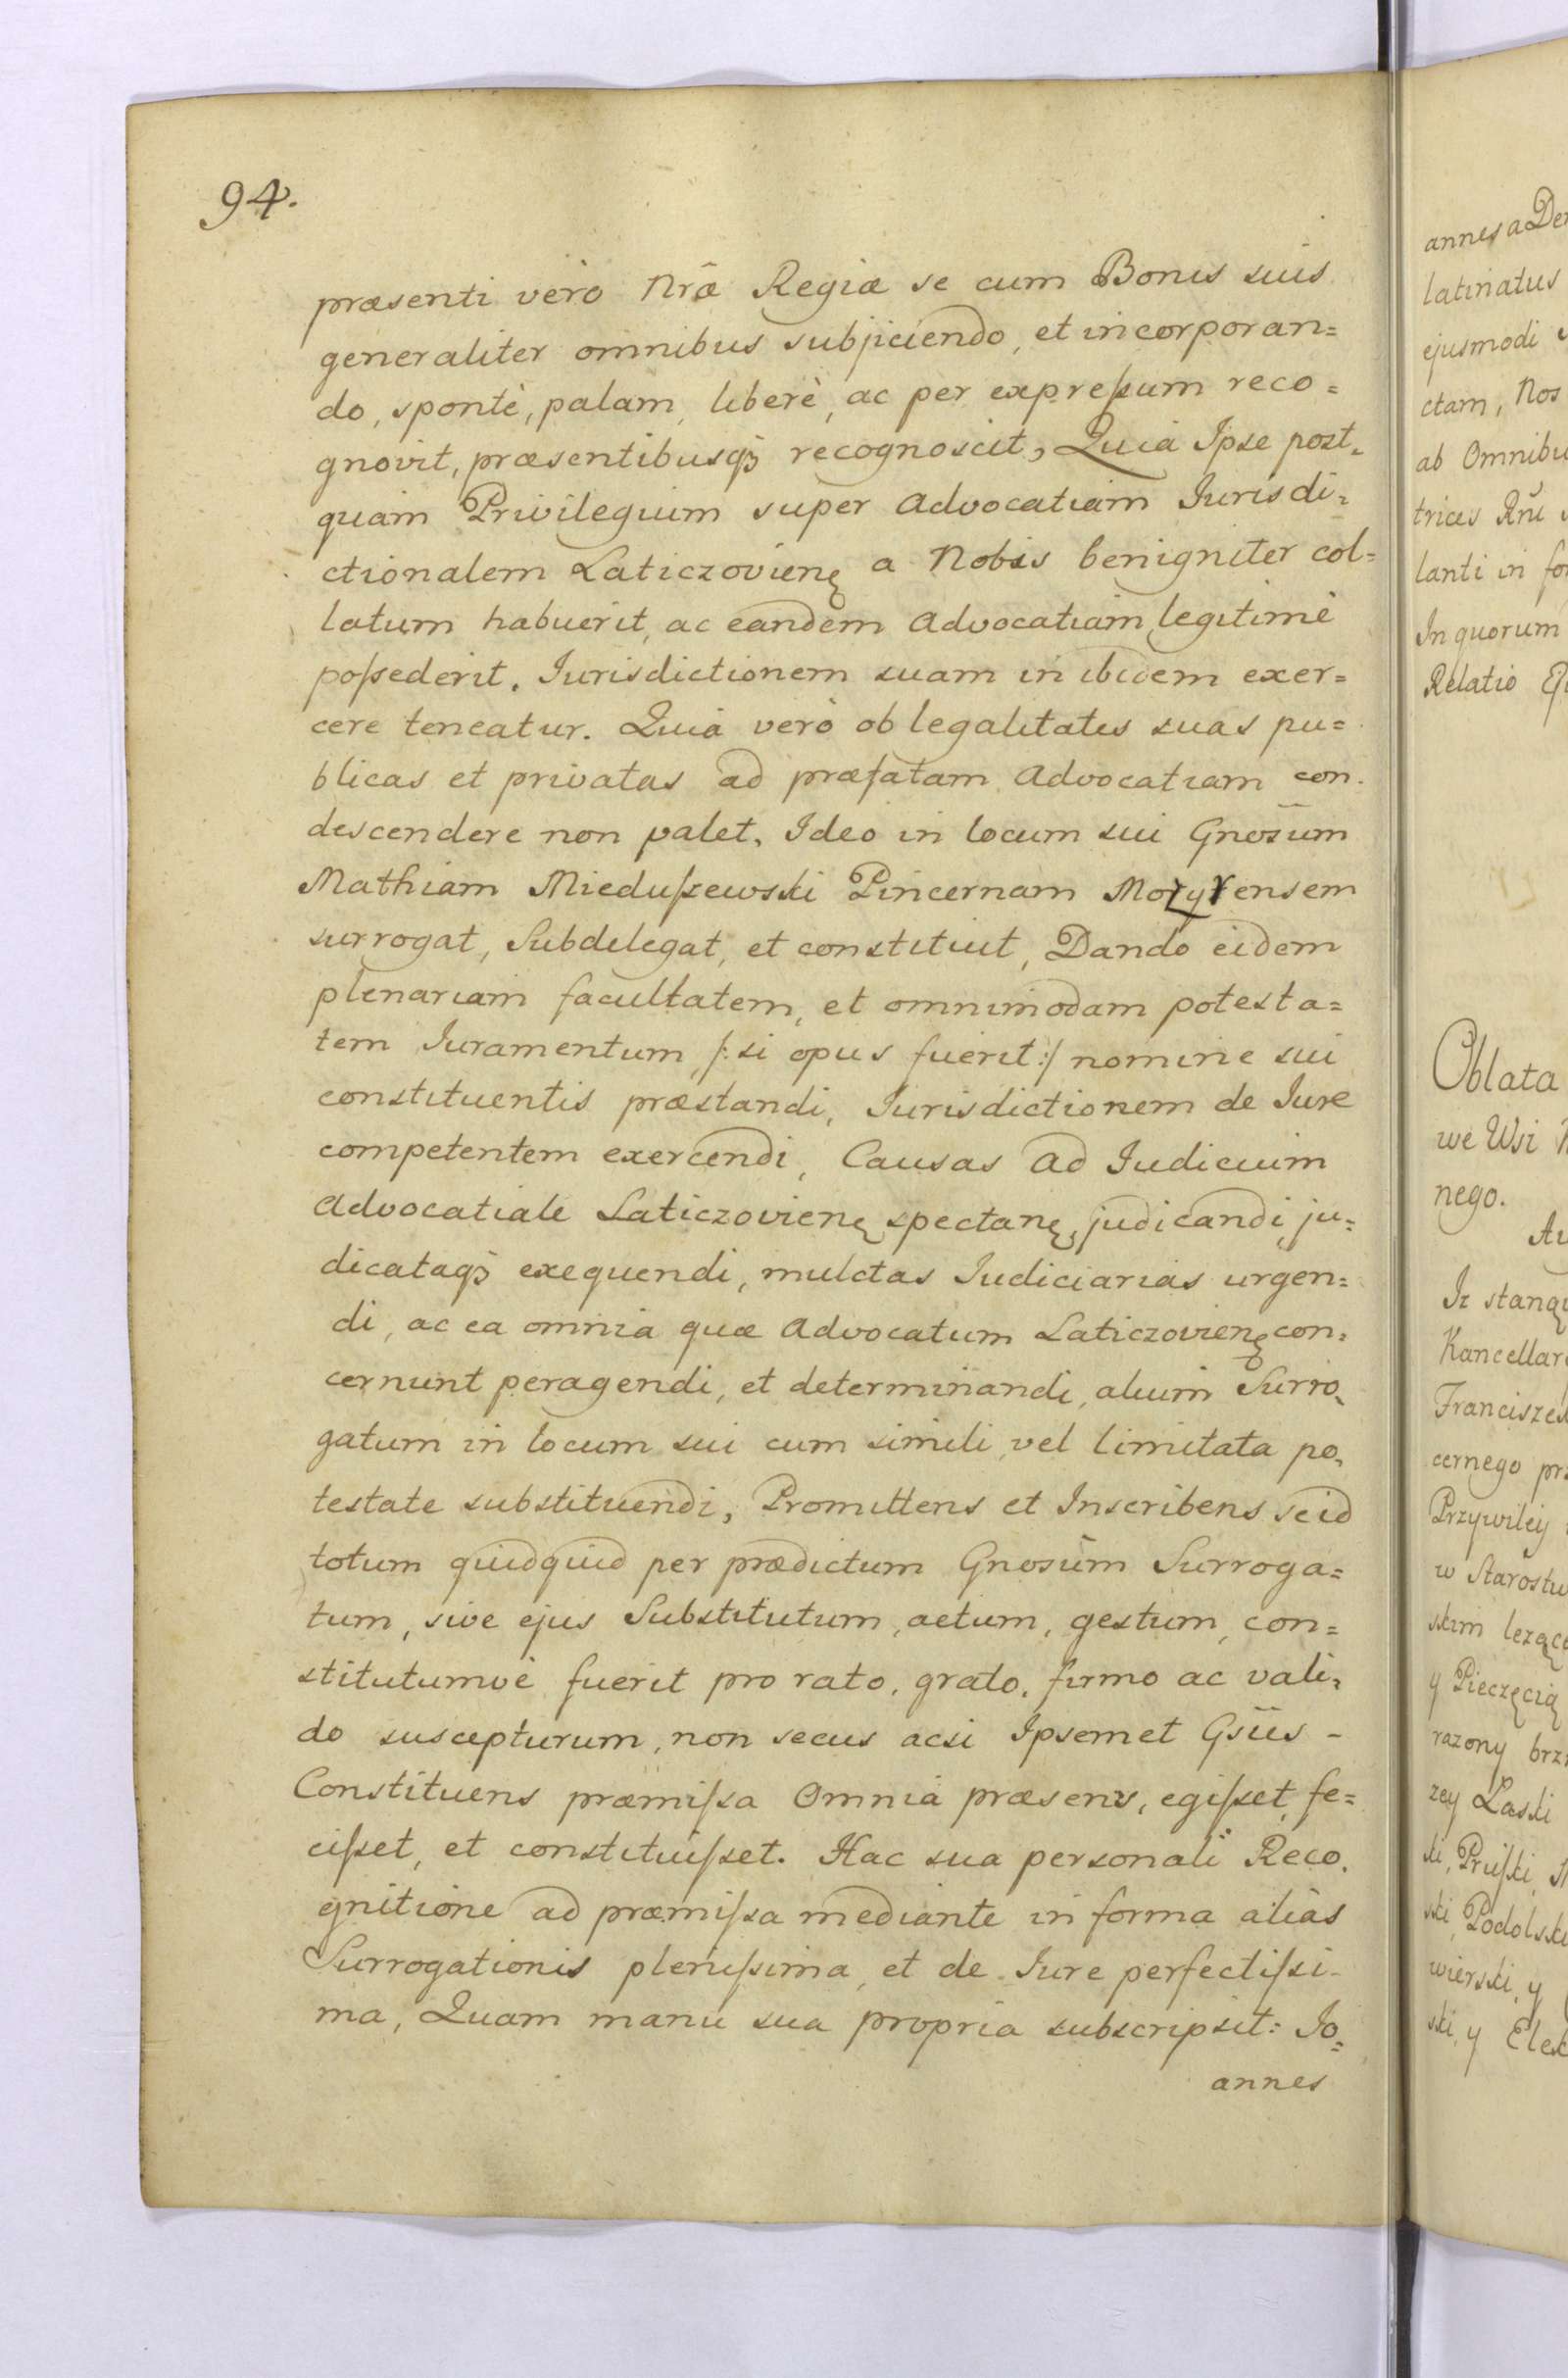 94.
præsenti verò Nrâ Regiæ se cum Bonis suis
generaliter omnibus subjiciendo, et incorporan=
do, spontè, palam, liberè, ac per expreſsum reco=
gnovit, præsentibusqꝫ recognoscit, Quia Ipse post=
quam Privilegium super Advocatiam Jurisdi=
ctionalem Laticzovienę a Nobis benigniter col=
latum habuerit, ac eandem Advocatiam legitimè
poſsederit. Jurisdictionem suam in ibidem exer=
cere teneatur. Quia verò ob legalitates suas pu=
blicas et privatas ad præfatam Advocatiam con=
descendere non valet, Ideo in locum sui Gnosum
Mathiam Mieduſzewski Pincernam Mozyrensem
surrogat, Subdelegat, et constituit, Dando eidem
plenariam facultatem, et omnimodam potesta=
tem Juramentum /: si opus fuerit :/ nomine sui
constituentis præstandi, Jurisdictionem de Jure
competentem exercendi, Causas ad Judicium
Advocatiale Laticzovienę spectanę, judicandi, ju=
dicataqꝫ exequendi, mulctas Judiciarias urgen=
di, ac ea omnia quæ Advocatum Laticzovienę con=
cernunt peragendi, et determinandi, alium Surro=
gatum in locum sui cum simili vel limitata po=
testate substituendi, Promittens et Inscribens se id
totum quidquid per prædictum Gnosum Surroga=
tum, sive ejus Substitutum, actum, gestum, con=
stitutumvè fuerit pro rato, grato, firmo ac vali=
do suscepturum, non secus acsi Ipsemet Gsûs -
Constituens præmiſsa Omnia præsens, egiſset, fe=
ciſset, et constituiſset. Hac sua personali Reco=
gnitione ad præmiſsa mediante in forma aliàs
Surrogationis pleniſsima, et de Jure perfectiſsi-
ma, Quam manu sua propria subscripsit: Jo=
annes
annes a De
latinatus
ejusmodi
ctam, Nos
ab Omnibu
trices Rnî
lanti in fo
In quorum
Relatio
Oblata
we Wsi
nego.
Jz stang
Kancellar
Franciszek
cernego prz
Przywiley
w Starostw
skim leżące
y Pieczęcią
razony brz
zey Łaski
ki, Pruſki,
ski, Podolski
wierski, y
ski, y Elek